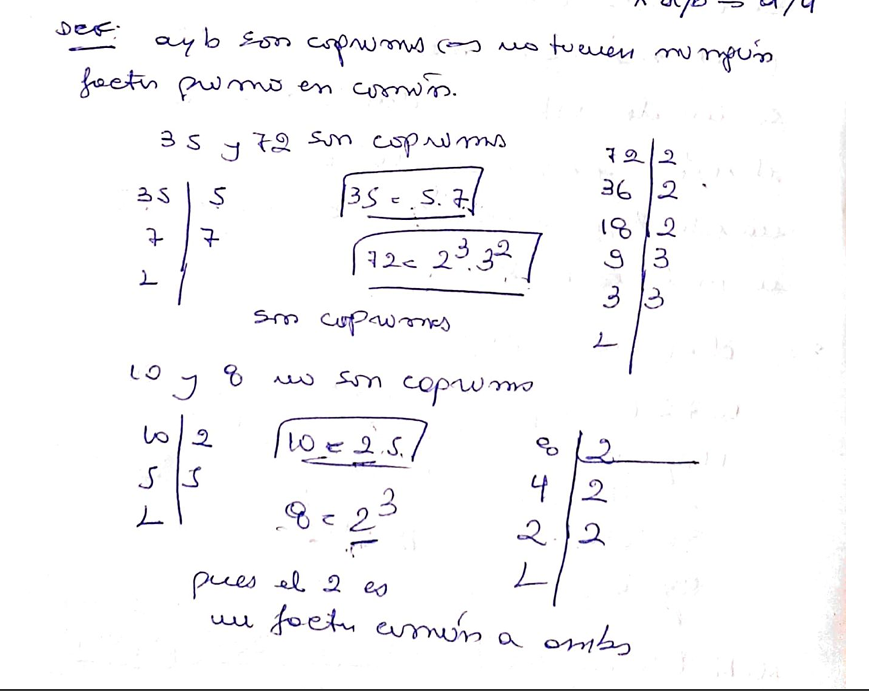 x a/b → a/4
Def: a y b son coprimos ⇔ no tienen ningún
factor primo en común.
35 y 72 son coprimos
35 | 5
7 | 7
1
35 = 5.7
72 = 2³.3²
72 | 2
36 | 2
18 | 2
9 | 3
3 | 3
1
son coprimos
10 y 8 no son coprimo
10 | 2
5 | 5
1
10 = 2.5.
8 = 2³
8 | 2
4 | 2
2 | 2
1
pues el 2 es
un factor común a ambos